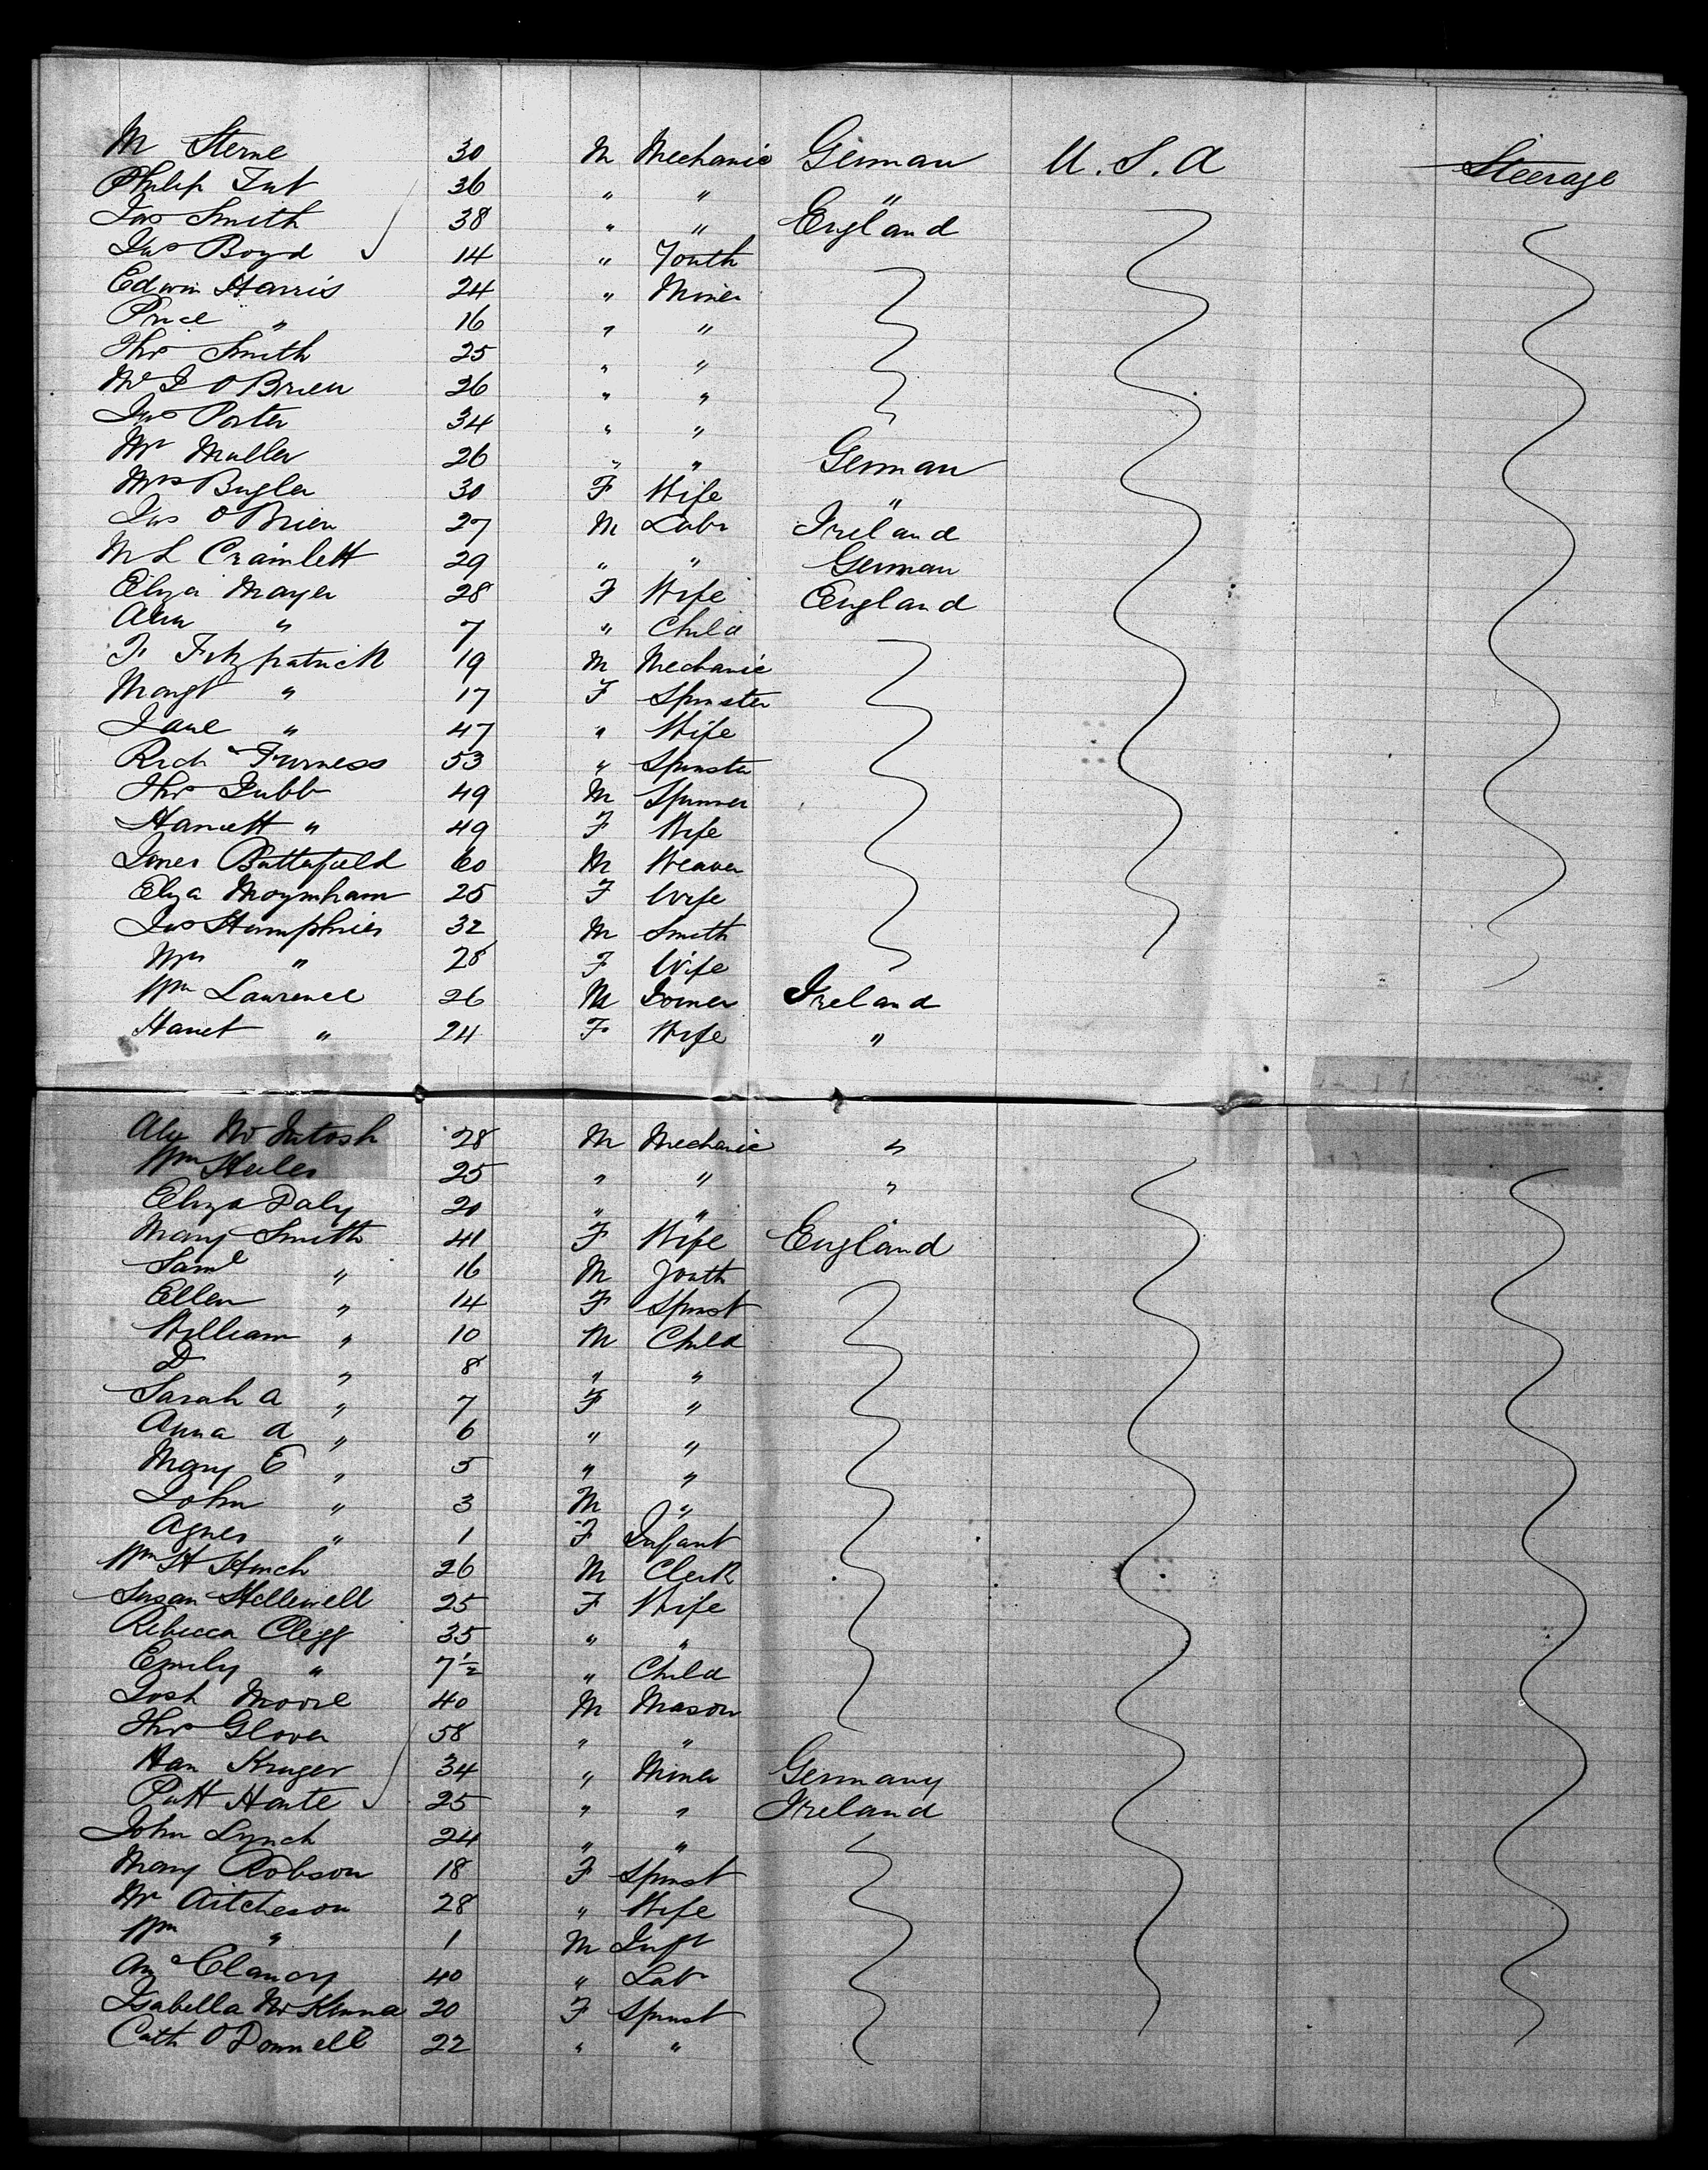 M Sterne 30 M Mechanic German U.S.A Steerage
Philip Tut 36 " " "
Jas Smith 38 " " England
Jas Boyd 14 " Youth
Edwin Harris 24 " Miner
Price " 16 " "
Thos Smith 25 " "
Mc I O'Brien 26 " "
Jas Porter 34 " "
Mr Muller 26 " " German
Mrs Bugler 30 F Wife "
Jas O'Brien 27 M Labr Ireland
M L Cramlett 29 " " German
Eliza Mayer 28 F Wife England
Ann " 7 " Child
F Fitzpatrick 19 M Mechanic
Margt " 17 F Spinster
Jane " 47 " Wife
Richd Furness 53 " Spinster
Thos Jubb 49 M Spinner
Harriett " 49 F Wife
James Butterfield 60 M Weaver
Eliza Moynham 25 F Wife
Jas Humphries 32 M Smith
Mrs " 28 F Wife
Wm Lawrence 26 M Joiner Ireland
Harriet " 24 F Wife "
Alex McIntosh 28 M Mechanic "
Wm Heiles 25 " " "
Eliza Daly 20 " "
Mary Smith 41 F Wife England
Saml " 16 M Youth
Ellen " 14 F Spinst
William " 10 M Child
D " 8 " "
Sarah A " 7 F "
Anna A " 6 " "
Mary E " 5 " "
John " 3 M "
Agnes " 1 F Infant
Wm H Hinch 26 M Clerk
Susan Hellewell 25 F Wife
Rebecca Clegg 35 " "
Emily " 7½ " Child
Josh Moore 40 M Mason
Thos Glover 58 " "
Han Kruger 34 " Miner Germany
Patt Harte 25 " " Ireland
John Lynch 24 " "
Mary Robson 18 F Spinst
Mr Aitcheson 28 " Wife
Wm " 1 M Inft
Clancy 40 " Labr
Isabella McKinna 20 F Spinst
Cath O'Donnell 22 " "